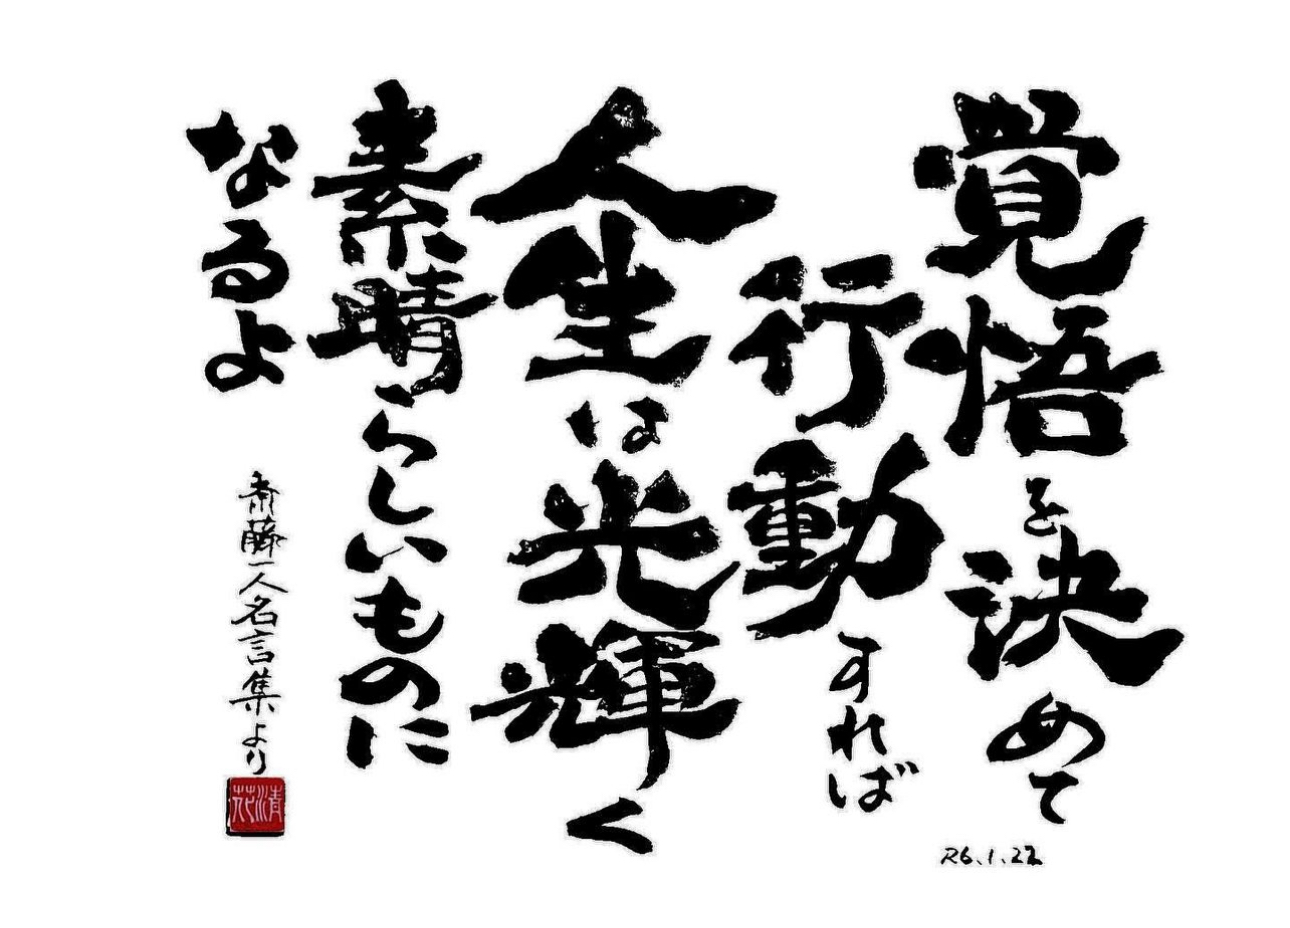 覚悟を決めて
行動すれば
人生は光輝く
素晴らしいものに
なるよ
斎藤一人名言集より
清花
R6.1.22